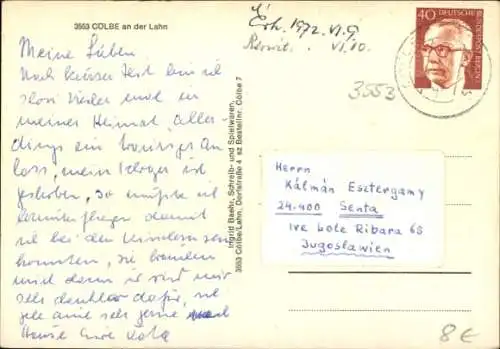 3553 CÖLBE an der Lahn
Meine Lieben
Nach kurzer Zeit bin ich
schon wieder mal in
meiner Heimat, aller-
dings ein trauriger An-
lass, mein
gestorben, so mußte ich
herunterfliegen damit
ich bei den Kindern sein
konnte, sie
und
sehr dankbar dafür, ich
sehr gerne
Hause Eure
Ingrid Baehr, Schreib- und Spielwaren,
3553 Cölbe/Lahn, Dorfstraße 4 sz Bestellnr. Cölbe 7
Erh. 1972. VI. 9.
VI. 10.
3553
40
DEUTSCHE
BUNDESPOST BERLIN
Herrn
Kálmán Esztergamy
24.400 Senta
Ive Lole Ribara 68
Jugoslawien
8 €